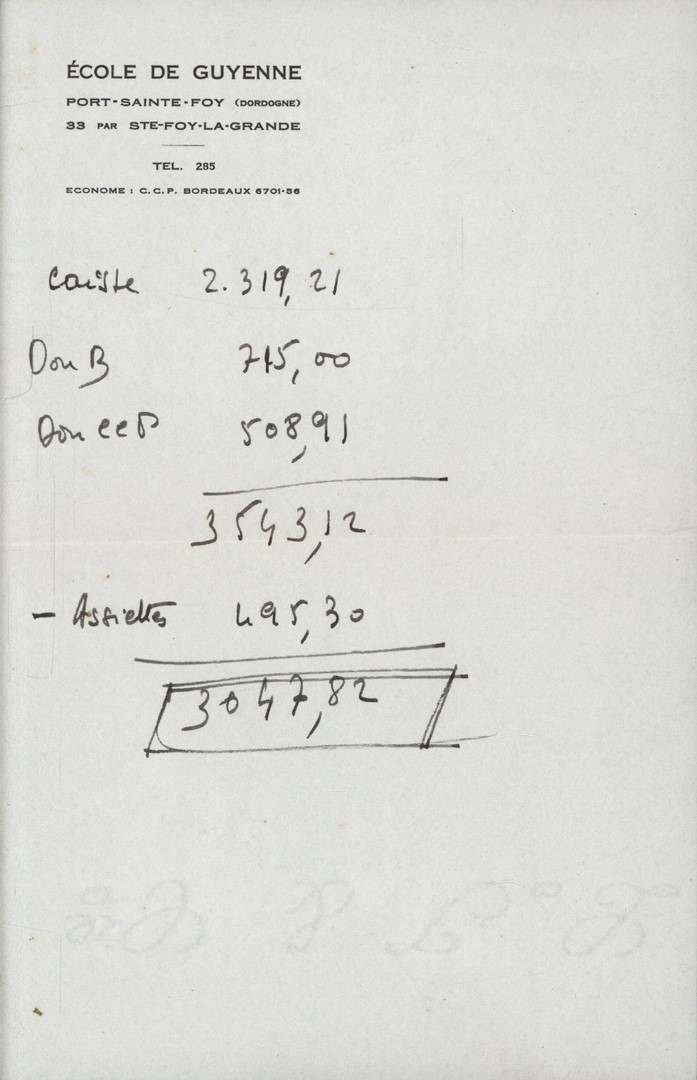 ÉCOLE DE GUYENNE
PORT-SAINTE-FOY (DORDOGNE)
33 PAR STE-FOY-LA-GRANDE
TEL. 285
ECONOME : C.C.P. BORDEAUX 6701-56
Caisse 2.319,21
Don B 715,00
Don CCP 508,91
3543,12
- Assiettes 495,30
3047,82